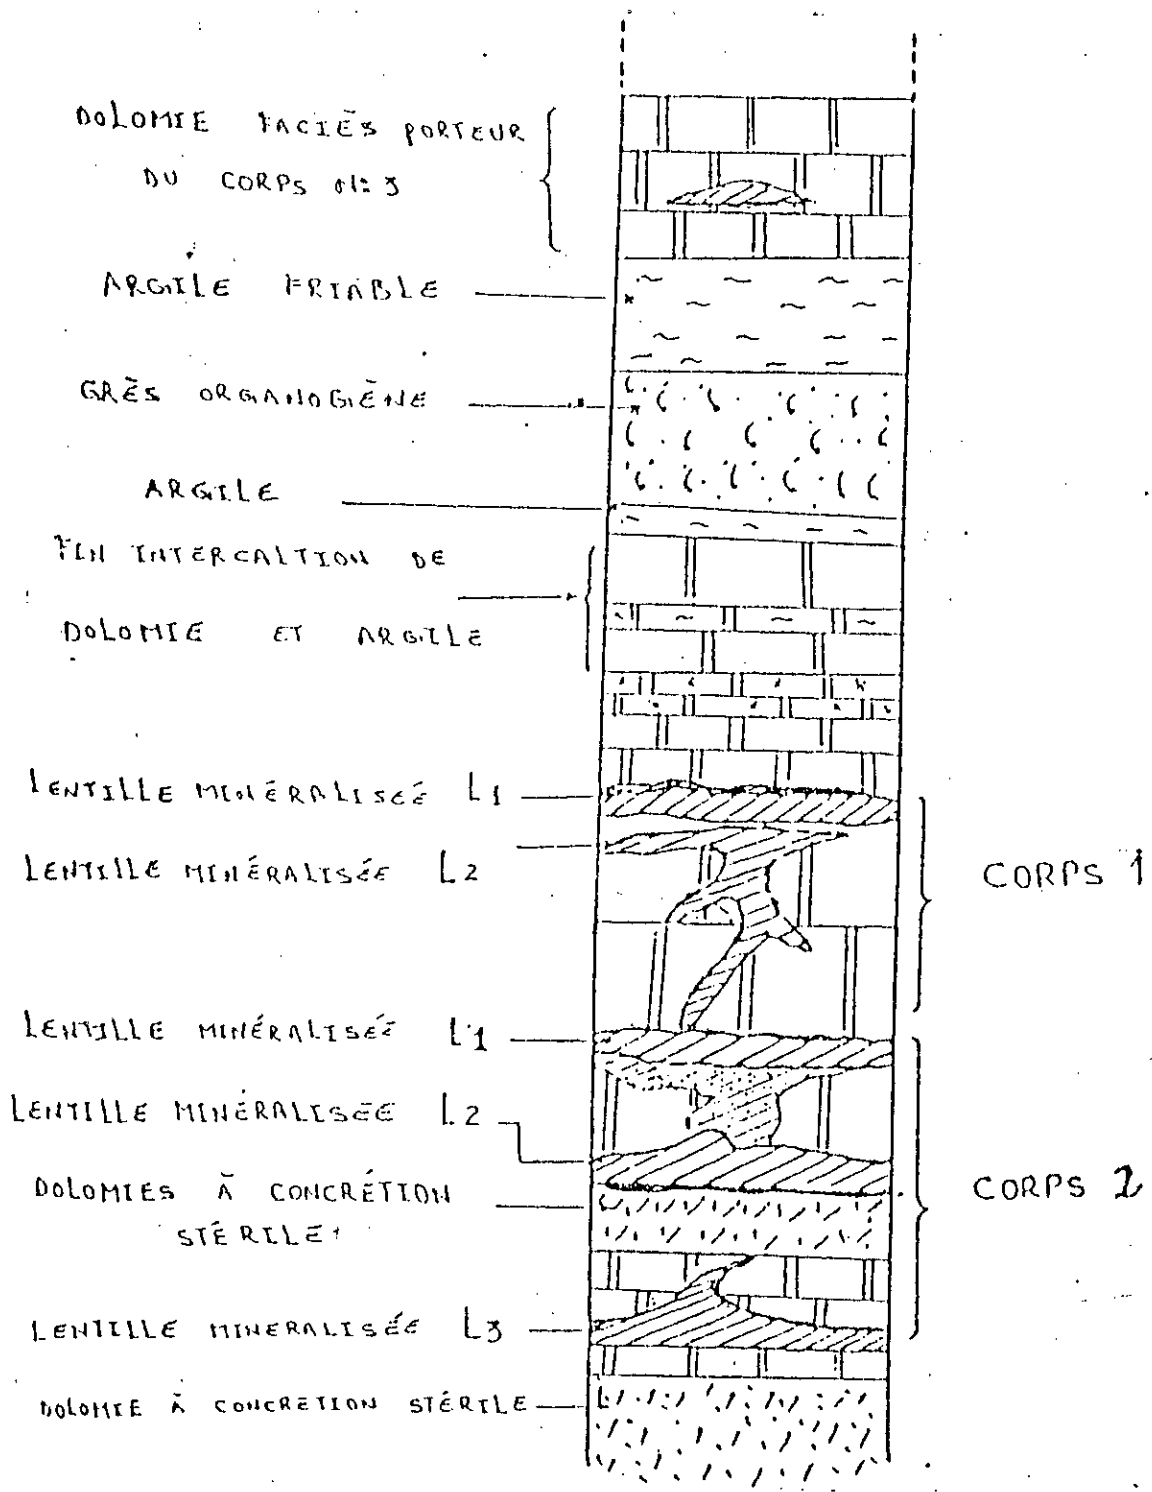 DOLOMIE FACIÉS PORTEUR
DU CORPS N: 3
ARGILE FRIABLE
GRÈS ORGANOGIÈNE
ARGILE
FIN INTERCALTION DE
DOLOMIE ET ARGILE
LENTILLE MINÉRALISÉE L1
LENTILLE MINÉRALISÉE L2
CORPS 1
LENTILLE MINÉRALISÉE L1
LENTILLE MINÉRALISÉE L2
DOLOMIES À CONCRÉTION
STÉRILE
CORPS 2
LENTILLE MINERALISÉE L3
DOLOMIE À CONCRETION STÉRILE